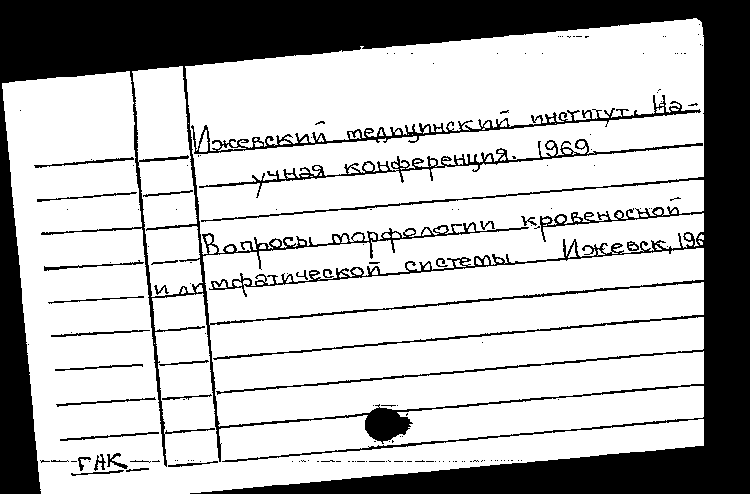 Ижевский медицинский институт. На-
учная конференция. 1969.
Вопросы морфологии кровеносной
и лимфатической системы. Ижевск, 196
ГАК